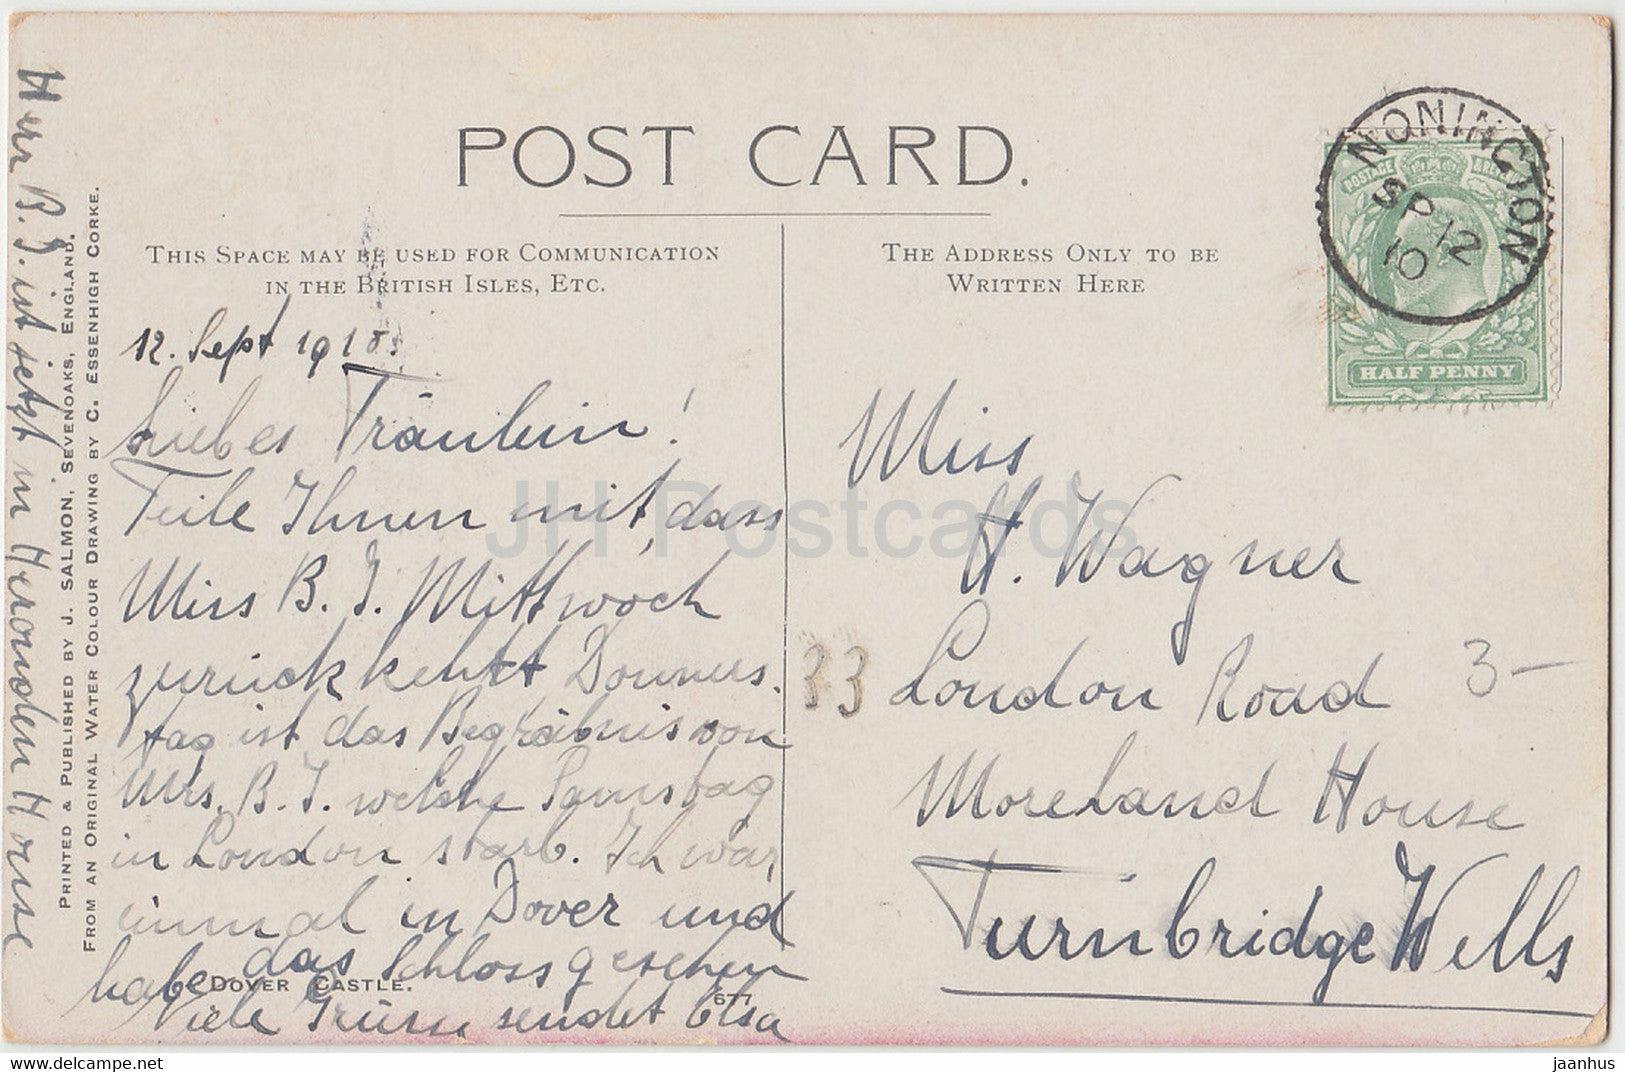 POST CARD.
THIS SPACE MAY BE USED FOR COMMUNICATION
IN THE BRITISH ISLES, ETC.
THE ADDRESS ONLY TO BE
WRITTEN HERE
NONINGTON
SP 12
10
POSTAGE
HALF PENNY
12. Sept 1910.
Liebes Fräulein!
Teile Ihnen mit, dass
Miss B. J. Mittwoch
zurückkehtt Donners.
tag ist das Begräbnis von
Mrs. B. J. welche Samstag
in London starb. Ich war
einmal in Dover und
habe das Schloss gesehen
Viele Grüsse sendet Elsa
Herr B. J. ist jetzt in Heronden House
PRINTED & PUBLISHED BY J. SALMON, SEVENOAKS, ENGLAND.
FROM AN ORIGINAL WATER COLOUR DRAWING BY C. ESSENHIGH CORKE.
DOVER CASTLE.
677
Miss
H. Wagner
33 London Road
Moreland House
Turnbridge Wells
3-
JH Postcards
https://www.delcampe.net
jaanhus